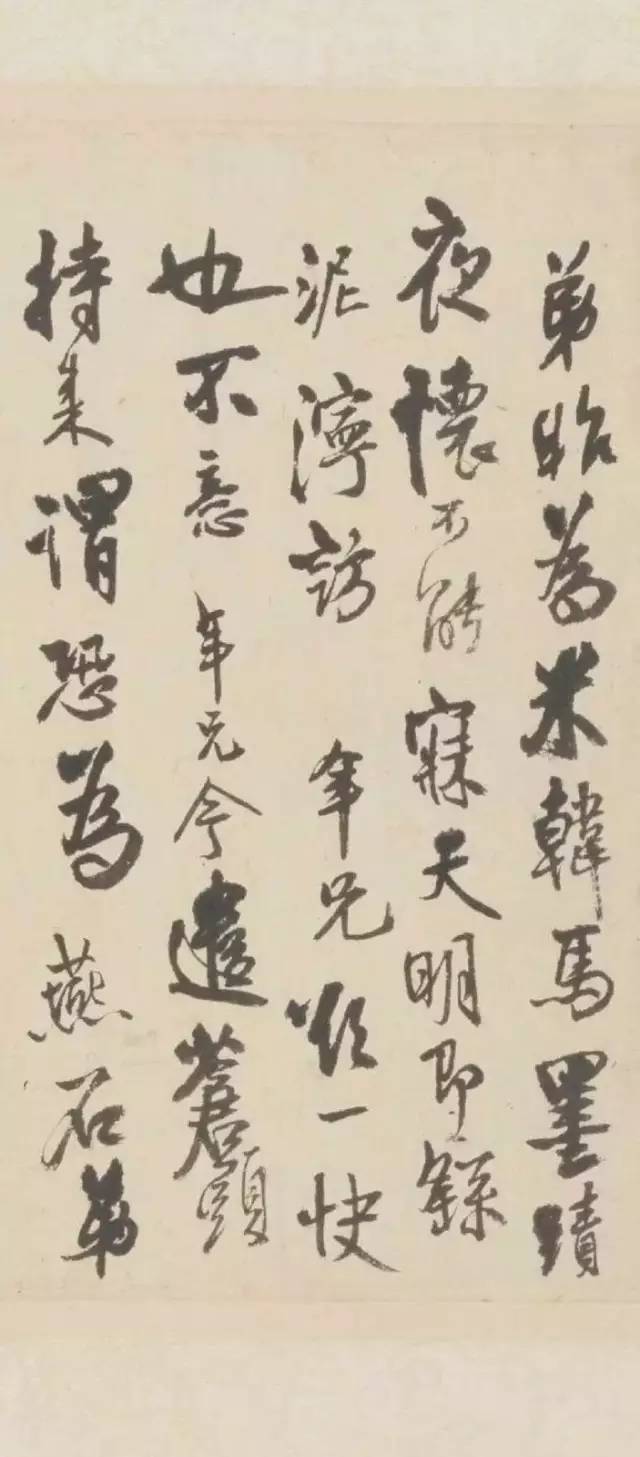 弟昨為米韓馬墨蹟
夜懷不能寐天明即繇
泥濘訪年兄欲一快
也不意年兄今遣蒼頭
持来謂恐為燕石弟